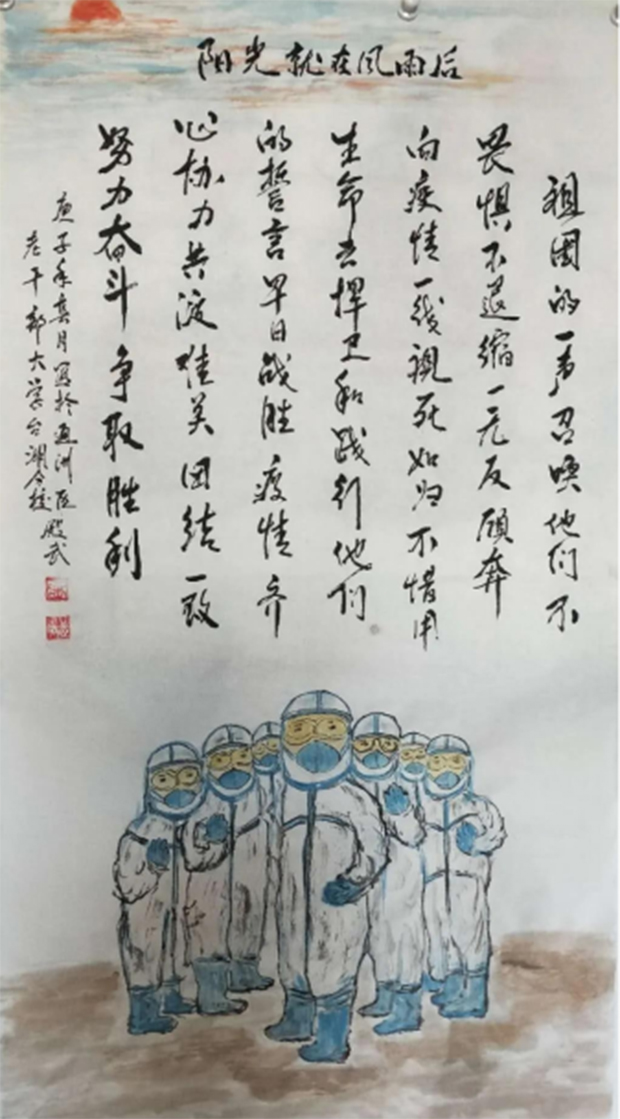 阳光就在风雨后
祖国的一声召唤他们不
畏惧不退缩一无反顾奔
向疫情一线视死如归不惜用
生命去捍卫和践行他们
的誓言早日战胜疫情齐
心协力共渡难关团结一致
努力奋斗争取胜利
庚子年寅月写於通洲区
老干部大学台湖分校